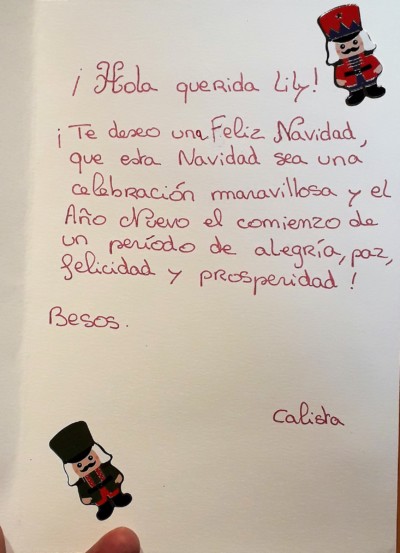 ¡Hola querida Lily!
¡Te deseo una Feliz Navidad,
que esta Navidad sea una
celebración maravillosa y el
Año Nuevo el comienzo de
un período de alegría, paz,
felicidad y prosperidad!
Besos.
Calista